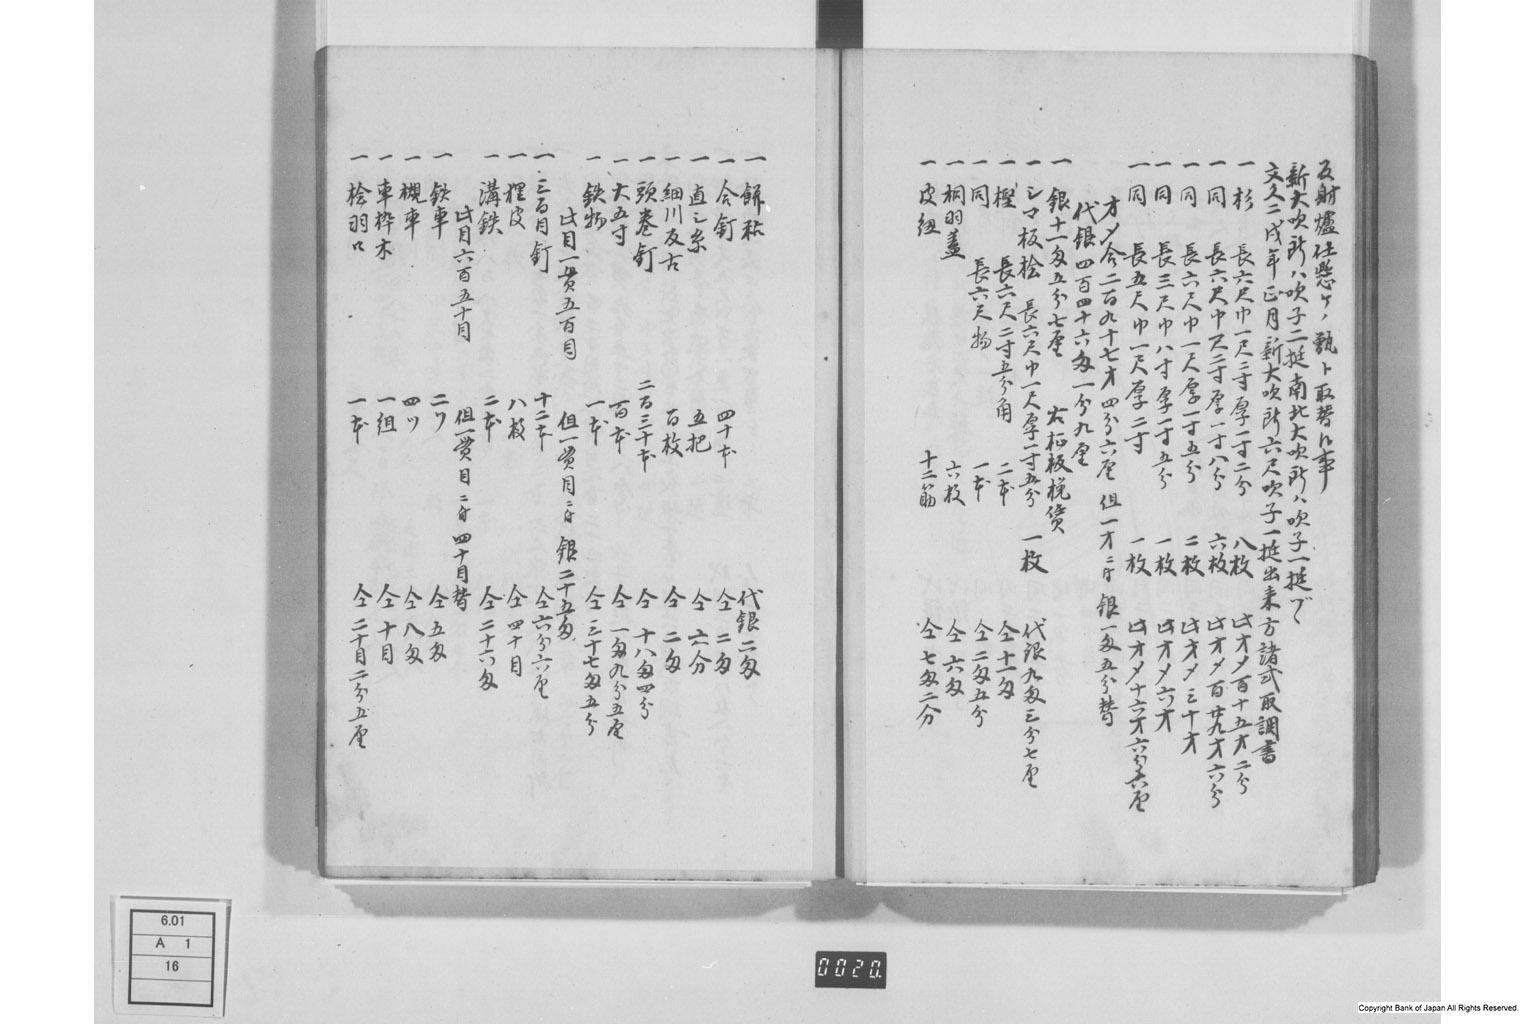 反射爐仕懸ケノ甑ト取替ル事
新大吹所ハ吹子二挺南北大吹所ハ吹子一挺ヅヽ
文久二戌年正月新大吹所六尺吹子一挺出来方諸式取調書
一 杉 長六尺巾一尺二寸厚一寸二分 八枚 此才〆百十五才二分
一 同 長六尺巾一尺二寸厚一寸八分 六枚 此才〆百廿九才六分
一 同 長六尺巾一尺厚一寸五分 二枚 此才〆三十才
一 同 長三尺巾八寸厚一寸五分 一枚 此才〆六才
一 同 長五尺巾一尺厚二寸 一枚 此才〆十六才六分六厘
才〆合二百九十七才四分六厘 但一才ニ付銀一匁五分替
代銀四百四十六匁一分九厘
一 銀十一匁五分七厘 右杣板挽賃
一 シマ板桧 長六尺巾一尺厚一寸五分 一枚 代銀九匁三分七厘
一 樫 長六尺二寸五分角 二本 仝十一匁
一 同 長六尺物 一本 仝二匁五分
一 桐羽蓋 六枚 仝六匁
一 皮紐 十二筋 仝七匁二分
一 餅粘 代銀二匁
一 合釘 四十本 仝二匁
一 直シ糸 五把 仝六分
一 細川反古 百枚 仝二匁
一 頭巻釘 二百三十本 仝十八匁四分
一 大五寸 百本 仝一匁九分五厘
一 鉄物 一本 仝三十七匁五分
此目一貫五百目 但一貫目ニ付銀二十五匁
一 三百目釘 十二本 仝六分六厘
一 狸皮 八枚 仝四十目
一 溝鉄 二本 仝二十六匁
此目六百五十目 但一貫目ニ付四十目替
一 鉄車 二ツ 仝五匁
一 槻車 四ツ 仝八匁
一 車枠木 一組 仝十目
一 桧羽口 一本 仝二十目二分五厘
6.01
A 1
16
0020.
Copyright Bank of Japan All Rights Reserved.